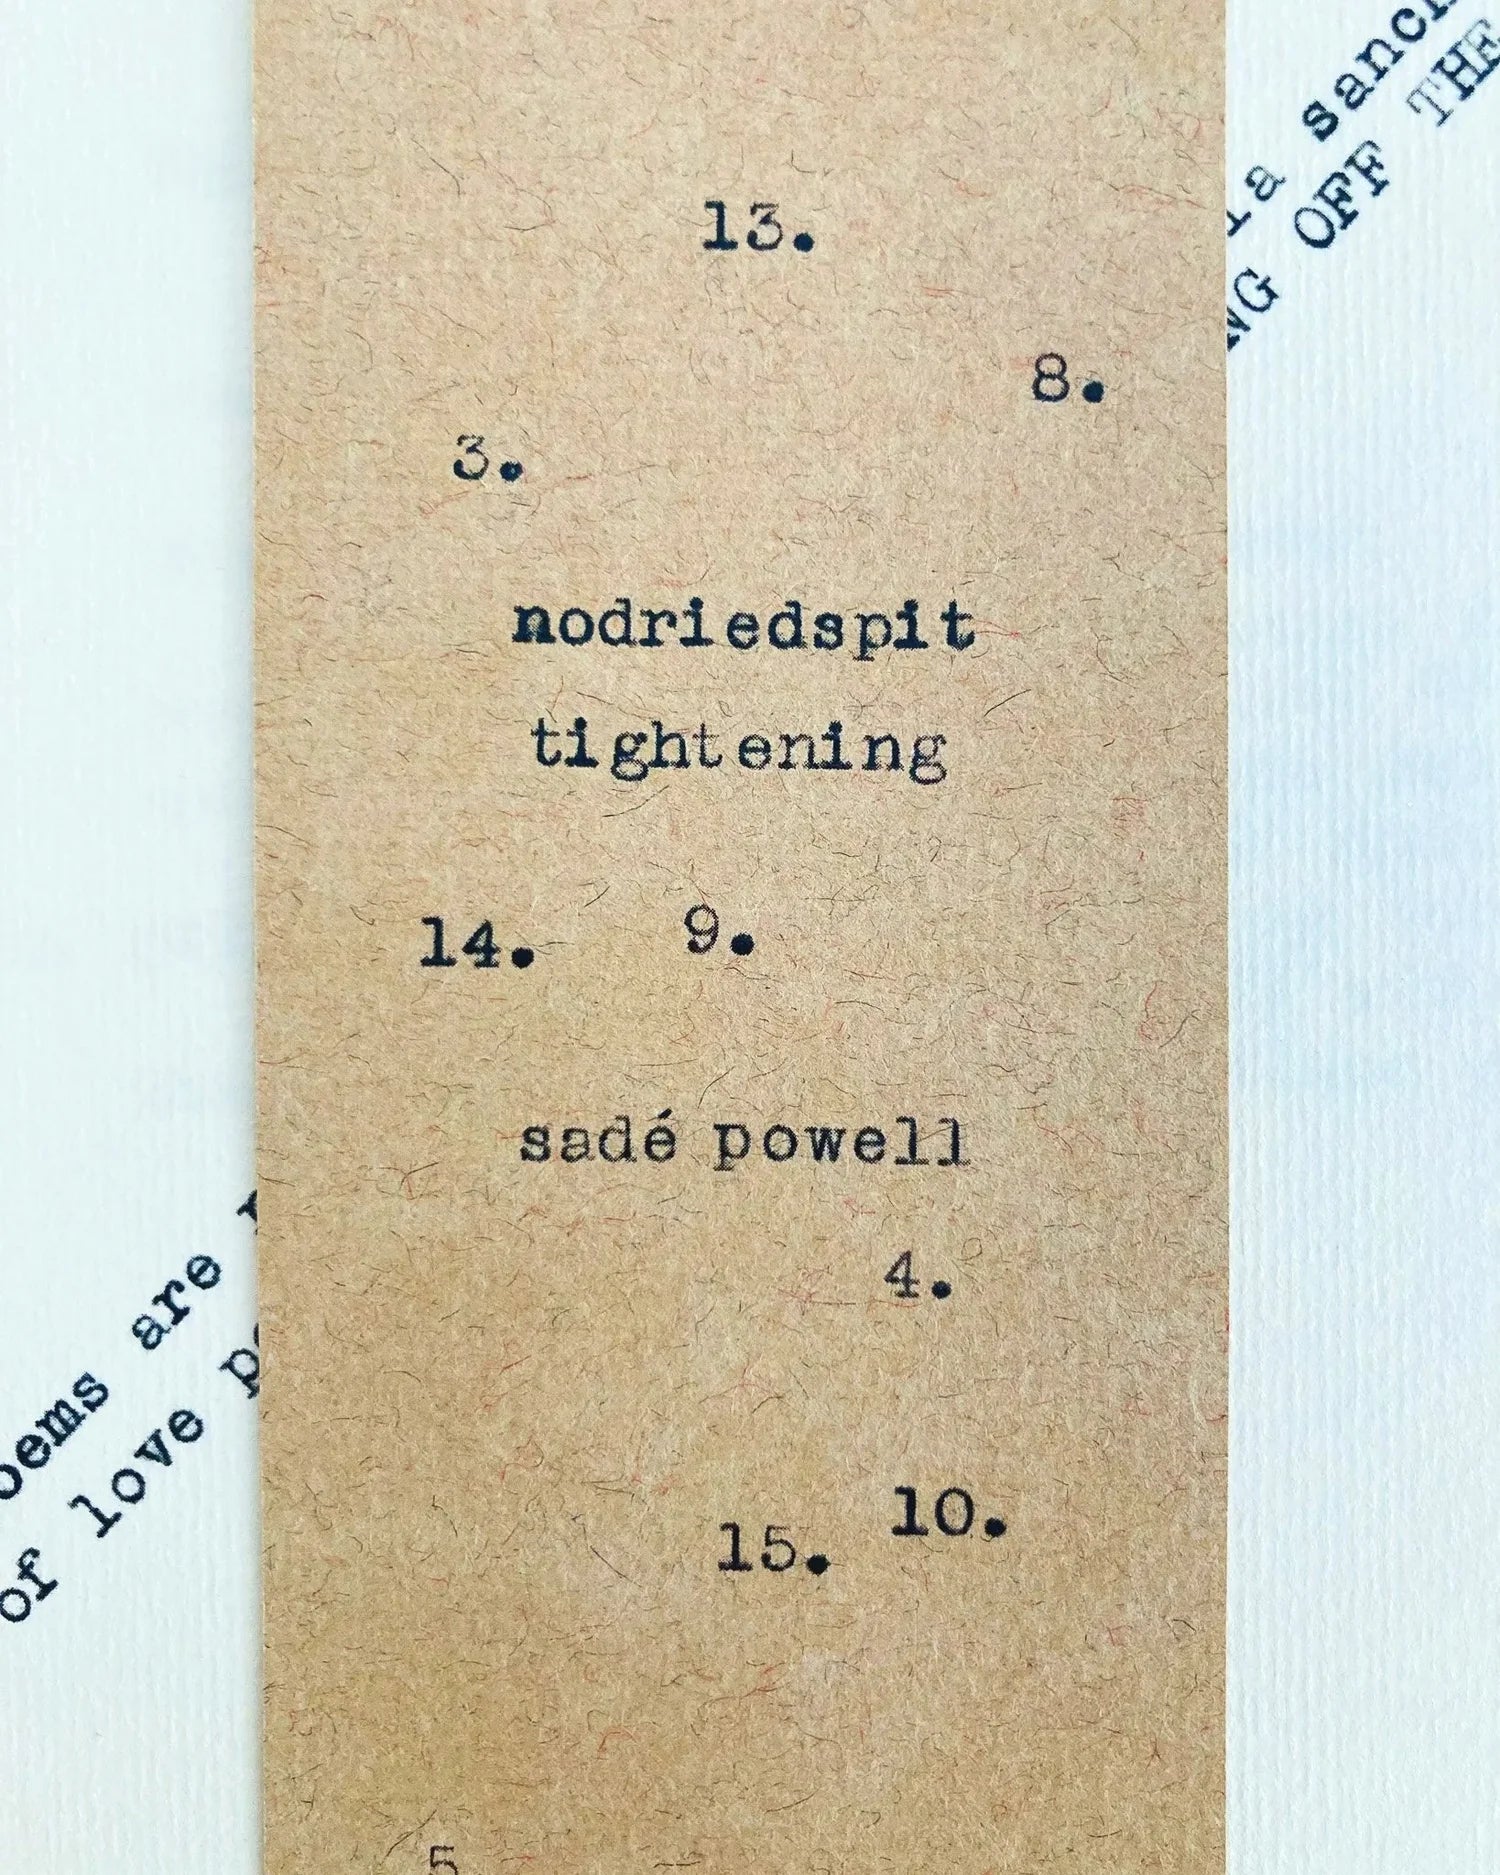 13.
8.
3.
nodriedspit
tightening
14. 9.
sadé powell
4.
10.
15.
5
la
OFF THE
are
of love